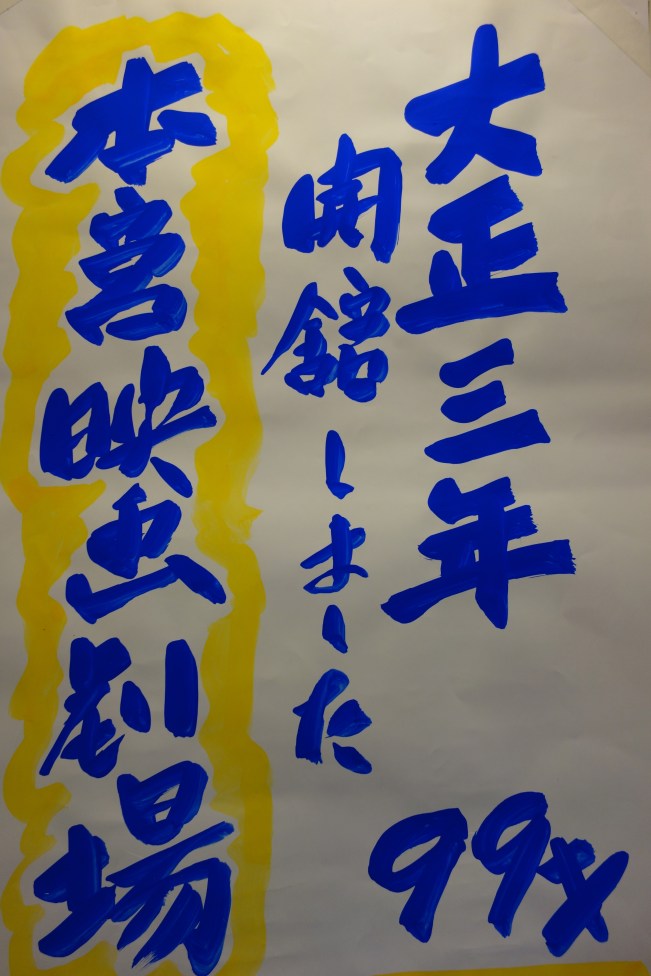 大正三年
99才
開館しました
本宮映画劇場